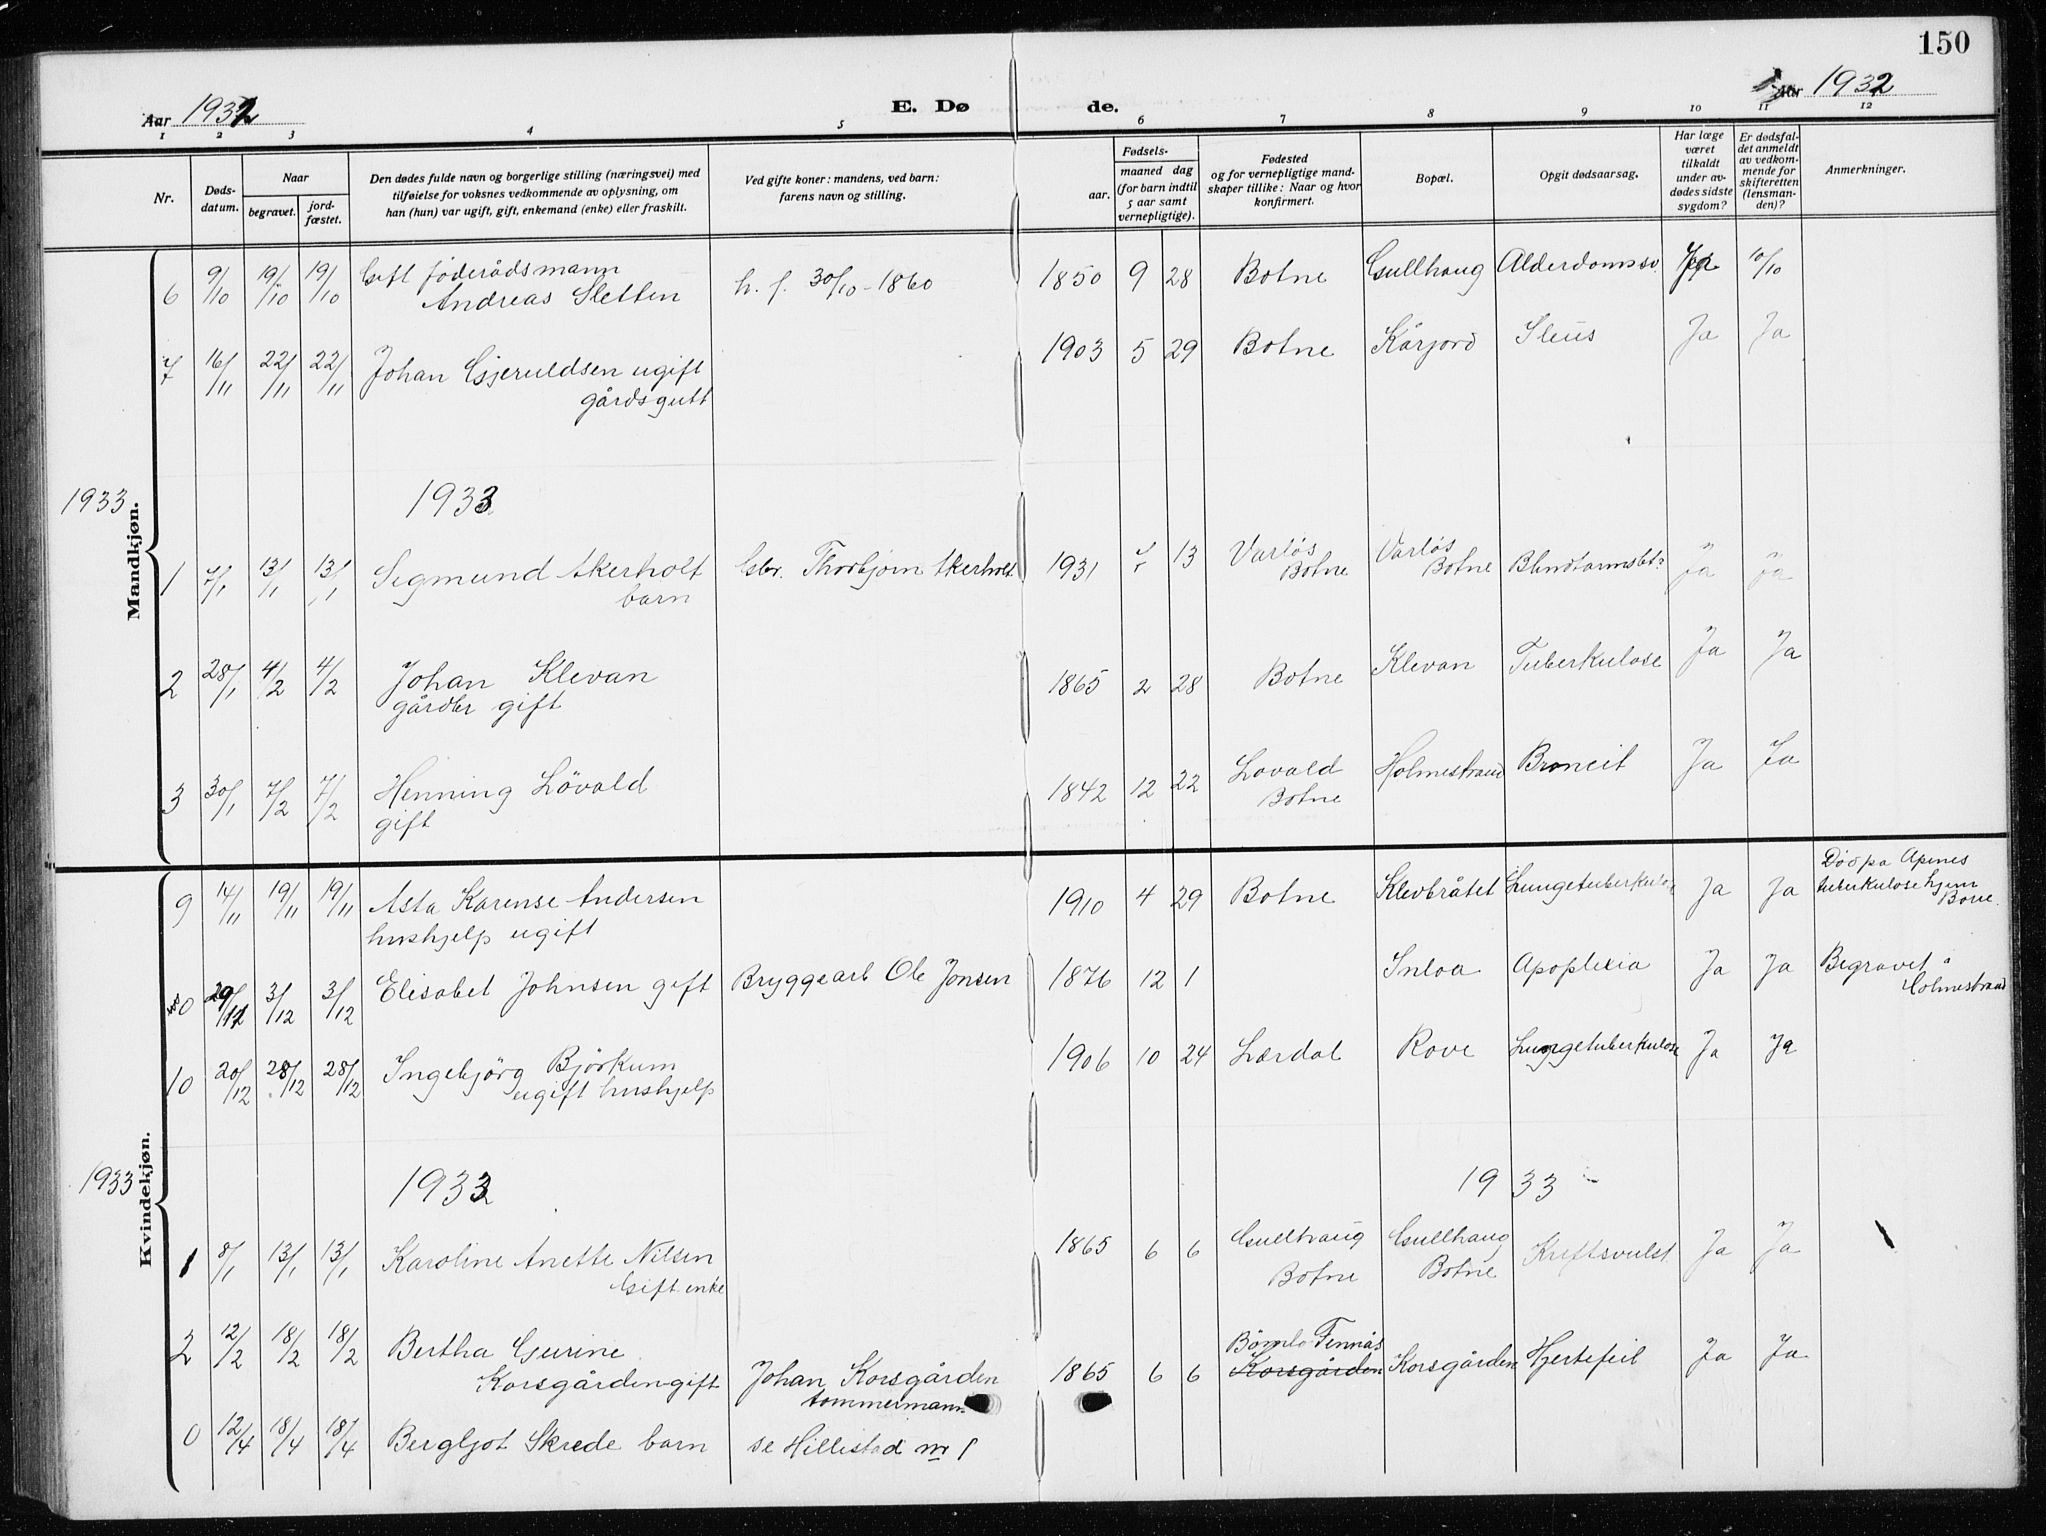 150
Aar 1932
E. Dø
de.
Aar 1932
1 2 3 4 5 6 7 8 9 10 11 12
Nr.
Døds-
datum.
Naar
begravet.
jord-
fæstet.
Den dødes fulde navn og borgerlige stilling (næringsvei) med
tilføielse for voksnes vedkommende av oplysning, om
han (hun) var ugift, gift, enkemand (enke) eller fraskilt.
Ved gifte koner: mandens, ved barn:
farens navn og stilling.
Fødsels-
aar.
maaned dag
(for barn indtil
5 aar samt
vernepligtige).
Fødested
og for vernepligtige mand-
skaper tillike: Naar og hvor
konfirmert.
Bopæl.
Opgit dødsaarsag.
Har læge
været
tilkaldt
under av-
dødes sidste
sygdom?
Er dødsfal-
det anmeldt
av vedkom-
mende for
skifteretten
(lensman-
den)?
Anmerkninger.
Mandkjøn.
6 9/10 19/10 19/10 Gift föderådsmann h. f. 30/10-1860 1850 9 28 Botne Gullhaug Alderdomssv. 10/10
Andreas Sletten
7 16/11 22/11 22/11 Johan Gjeruldsen ugift 1903 5 29 Botne Kårjord Ileus Ja Ja
gårdsgutt
1933 1933
1 7/1 13/1 13/1 Sigmund Akerholt Gbr. Thorbjørn Akerholt 1931 13 Varløs Varløs Blindtarmsbt. Ja Ja
barn Botne Botne
2 28/1 4/2 4/2 Johan Klevan 1865 2 28 Botne Klevan Tuberkulose Ja Ja
gårdbr gift
3 30/1 7/2 7/2 Henning Lövald 1842 12 22 Lovald Holmestrand Broncit Ja Ja
gift Botne
Kvindekjøn.
9 14/11 19/11 19/11 Asta Karense Andersen 1910 4 29 Botne Klevbråtet Lungetuberkulose Ja Ja Död pa Apenes
hushjelp ugift tuberkulosehjem
Borre.
0 29/11 3/12 3/12 Elisabet Johnsen gift Bryggearb Ole Jonsen 1876 12 1 Snloa Apoplexia Ja Ja Begravet i
Holmestrand
10 20/12 28/12 28/12 Ingebjörg Björkum 1906 10 24 Lærdal Rove Lungetuberkulose Ja Ja
ugift hushjelp
1933 1933 1933
1 8/1 13/1 13/1 Karoline Anette Nilsen 1865 6 6 Gullhaug Gullhaug Kreftsvulst Ja Ja
Gift enke Botne Botne
2 12/2 18/2 18/2 Bertha Gurine Bömlo Fennås
Korsgården gift Johan Korsgården 1865 6 6 Korsgården Korsgården Hjertefeil Ja Ja
tommermann
0 12/4 18/4 18/4 Bergljot Skrede barn se Hillestad nr 1